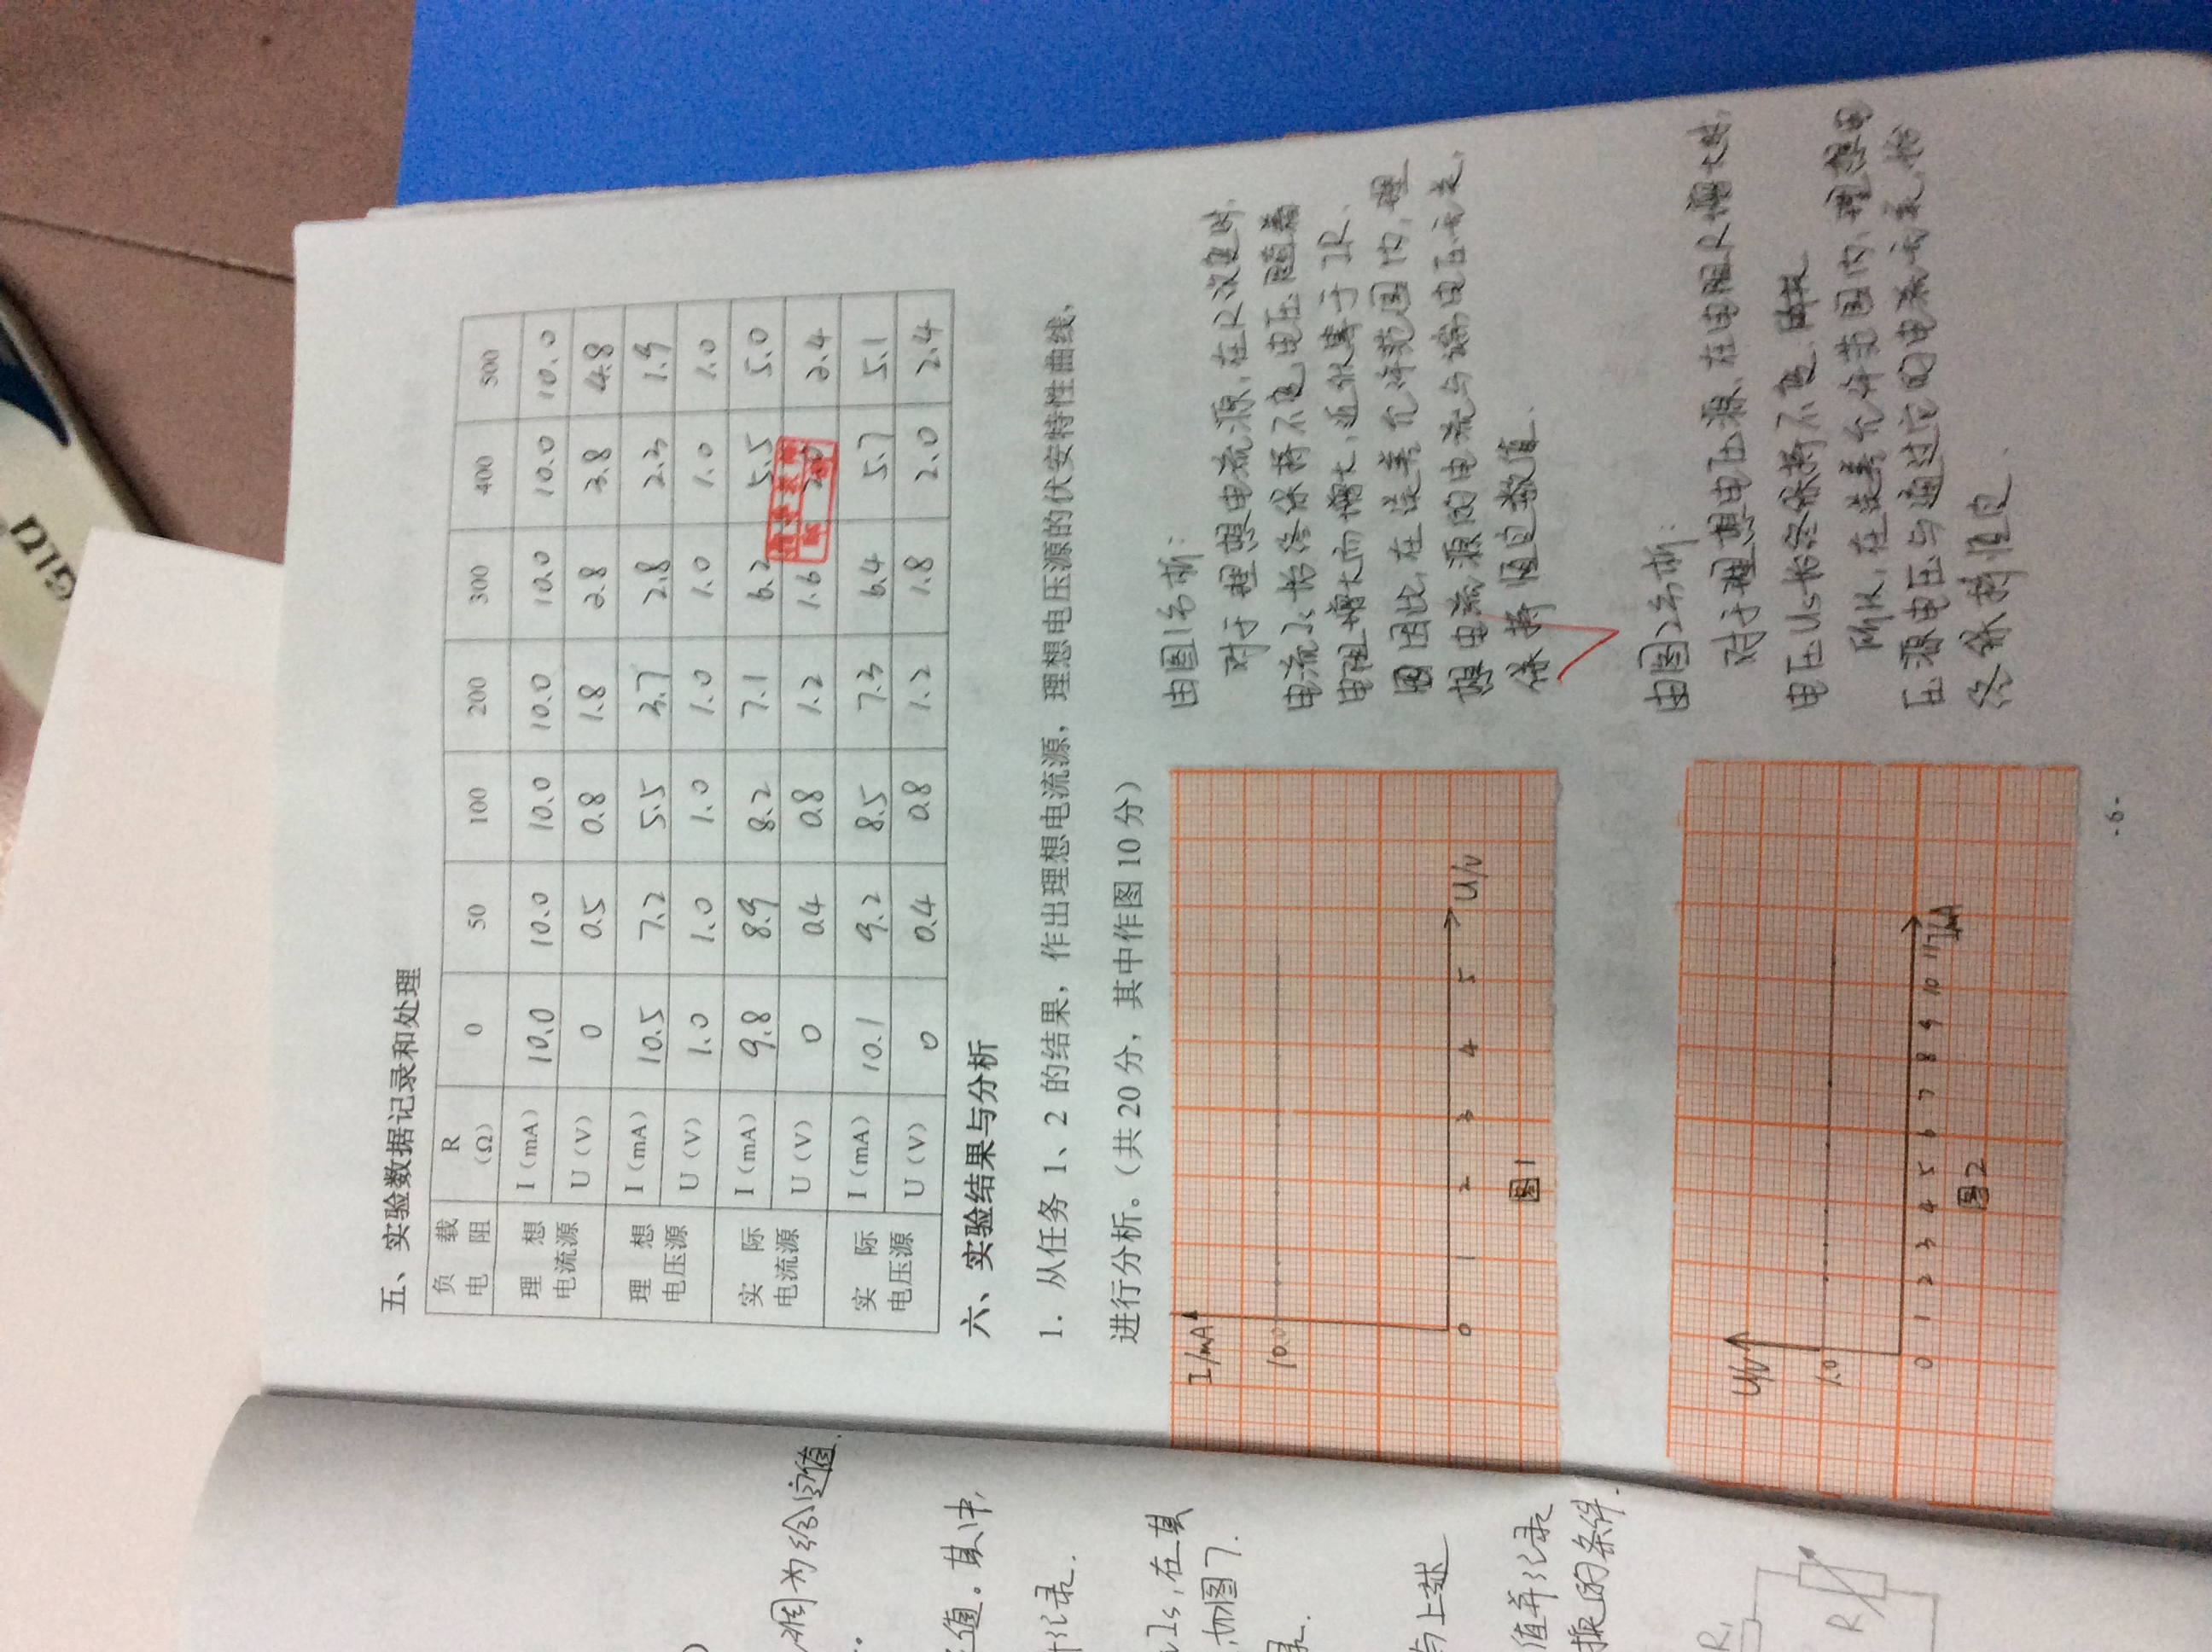 GLU
五、实验数据记录和处理
负 载 电 阻 R (Ω) 0 50 100 200 300 400 500
理 想 电流源 I（mA） 10.0 10.0 10.0 10.0 10.0 10.0 10.0
U（V） 0 0.5 0.8 1.8 2.8 3.8 4.8
理 想 电压源 I（mA） 10.5 7.2 5.5 3.7 2.8 2.3 1.9
U（V） 1.0 1.0 1.0 1.0 1.0 1.0 1.0
实 际 电流源 I（mA） 9.8 8.9 8.2 7.1 6.2 5.5 5.0
U（V） 0 0.4 0.8 1.2 1.6 2.0 2.4
实 际 电压源 I（mA） 10.1 9.2 8.5 7.3 6.4 5.7 5.1
U（V） 0 0.4 0.8 1.2 1.8 2.0 2.4
六、实验结果与分析
1. 从任务 1、2 的结果，作出理想电流源，理想电压源的伏安特性曲线，
进行分析。（共 20 分，其中作图 10 分）
I/mA
10.0
0 1 2 3 4 5 U/V
图1
由图1分析：
对于理想电流源，在R改变时，
电流Is始终保持不变，电压随着
电阻增大而增大，近似等于IR、
因此，在误差允许范围内，理
想电流源的电流与端电压无关，
保持恒定数值.
U/V
1.0
0 1 2 3 4 5 6 7 8 9 10 11 I/mA
图2
由图2分析：
对于理想电压源，在电阻R增大时，
电压Us始终保持不变.
所以，在误差允许范围内，理想电
压源电压与通过它的电流无关，始
终保持恒定.
-6-
调为给定值.
值。其中,
记录.
Is,在其
,如图7.
录.
与上述
值并记录
换的条件.
R1
R